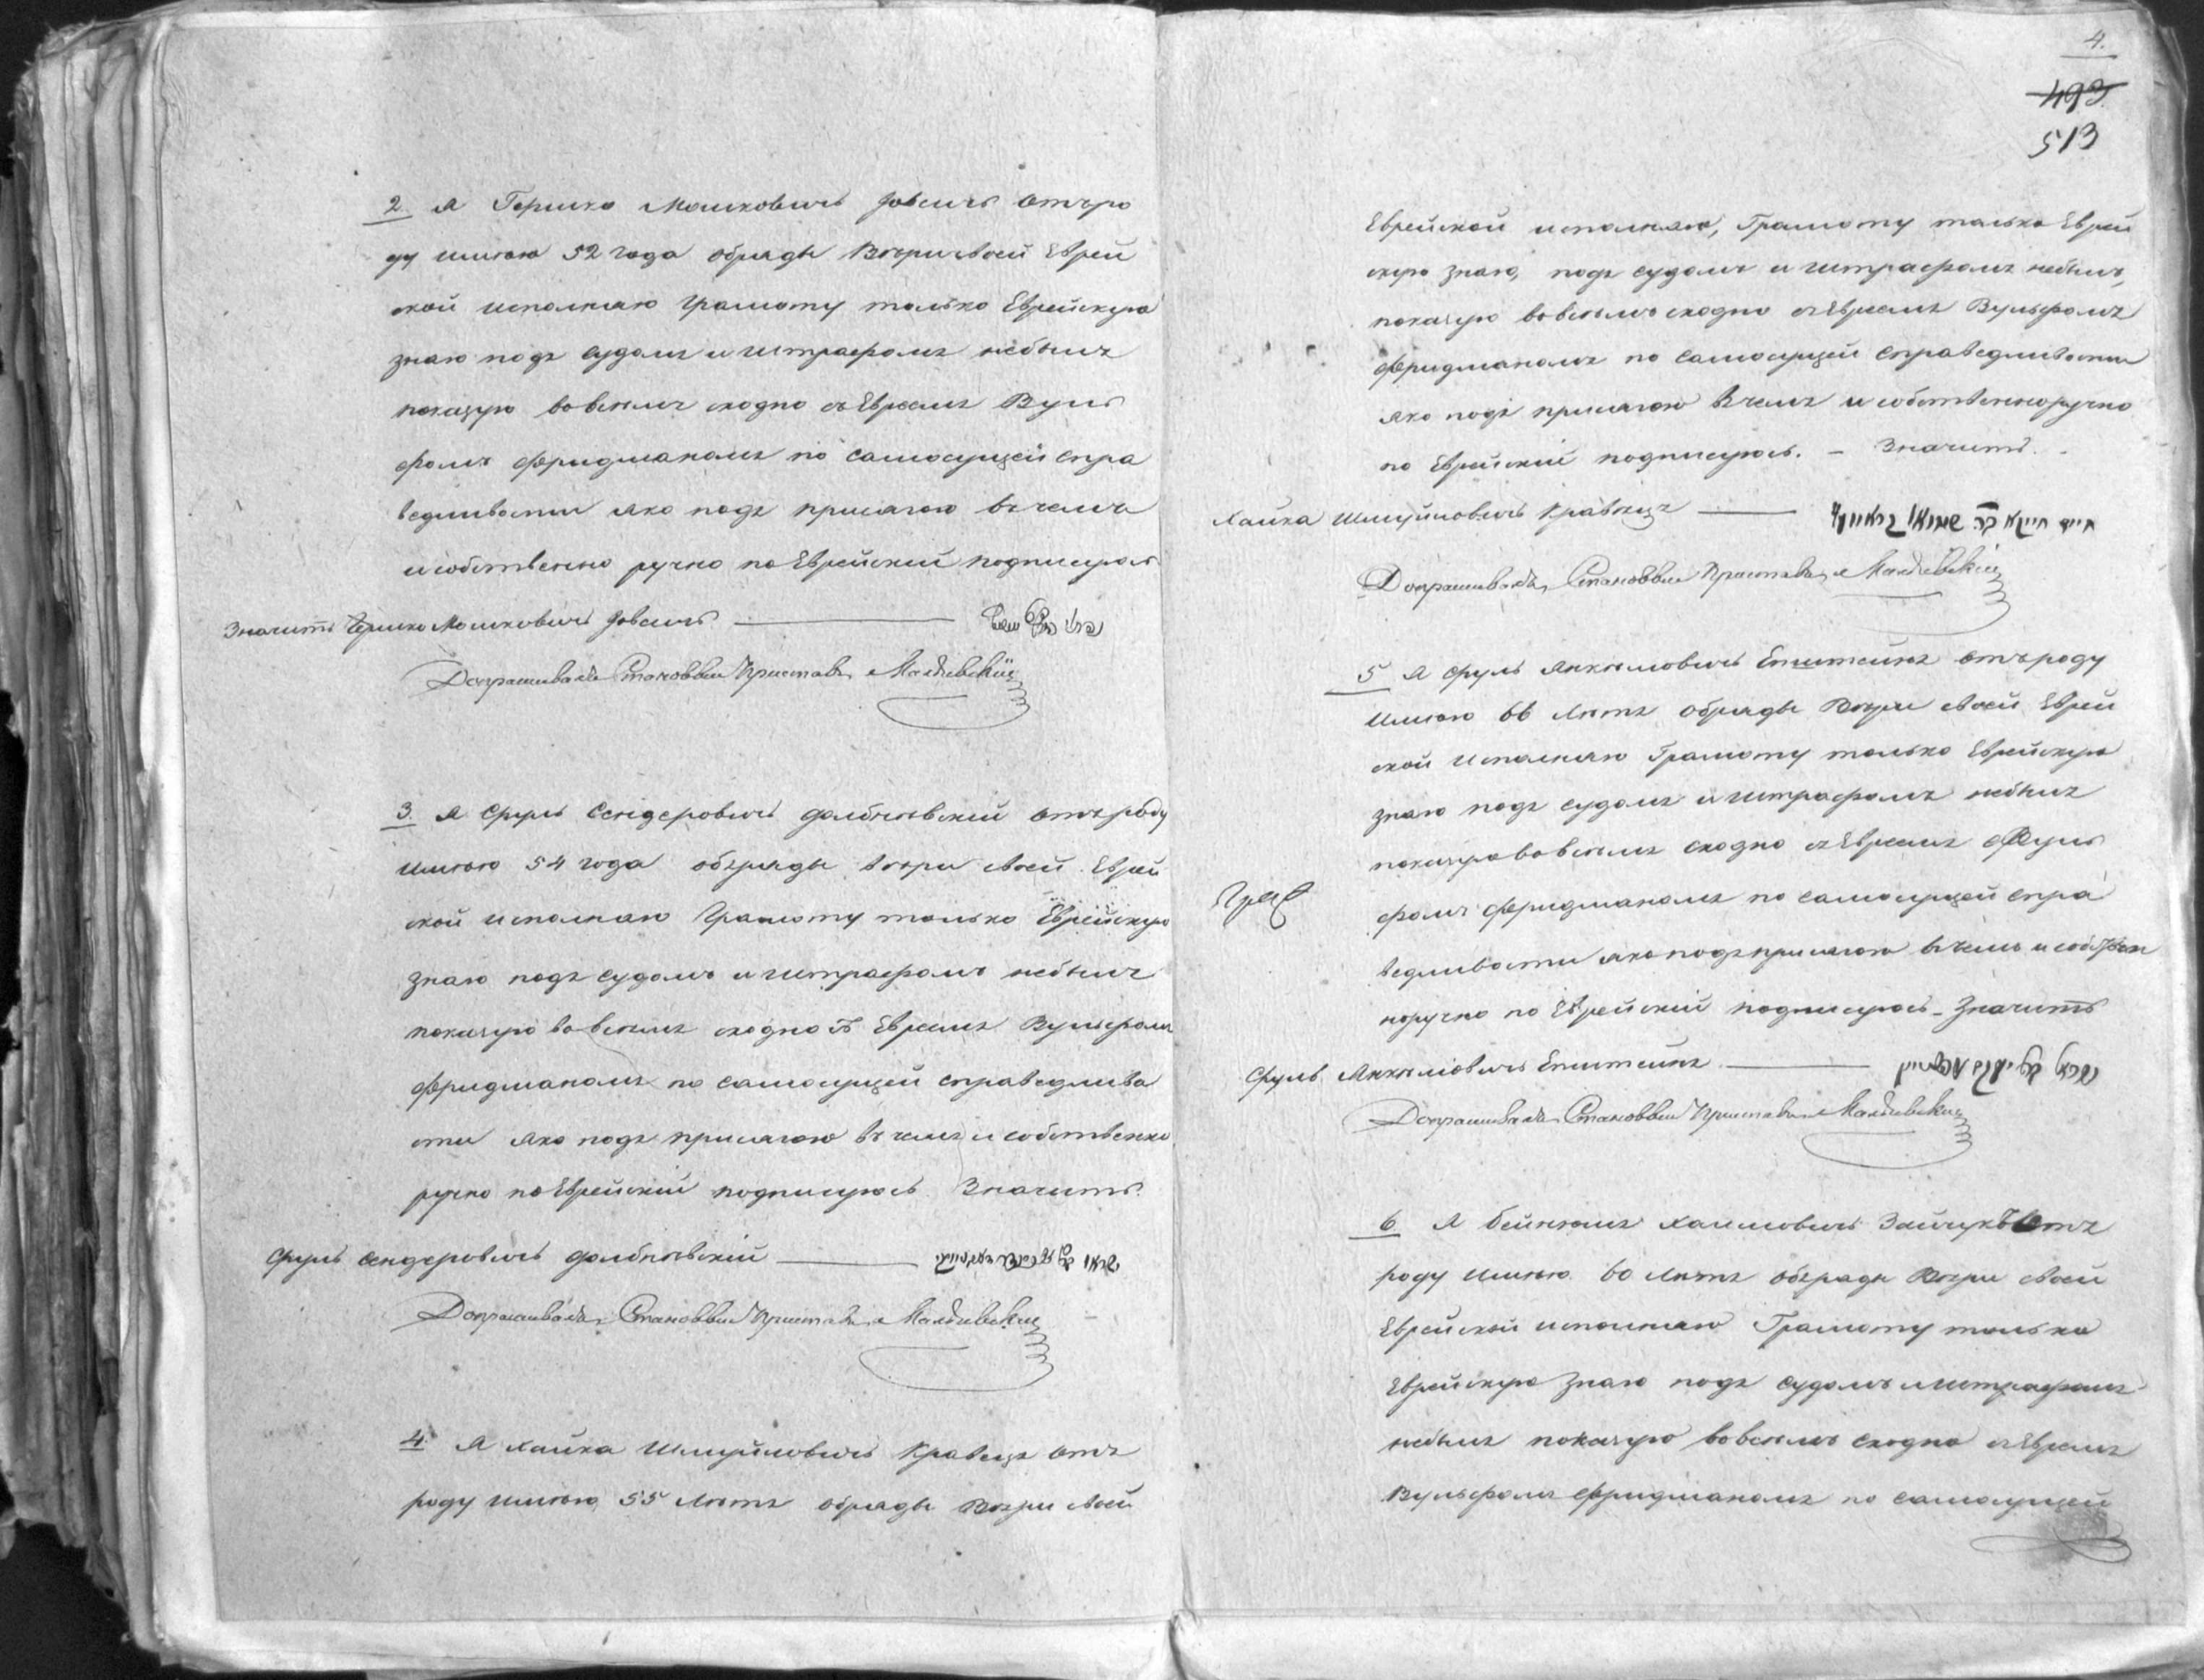 2. Я Гершко Мошковичъ Іовельъ отъро
ду имѣю 52 года обряды Вѣры своей Еврей
ской исполняю грамоту только Еврейскую
знаю подъ судомъ и штрафомъ небылъ
показую вовсемъ сходно съ Евреемъ Вуль
фомъ Фридманомъ по самосущей спра
ведливости яко подъ присягою въ чемъ
и собственно ручно по Еврейский подписуюсь
Значитъ Гершко Мошковичъ
Допрашивалъ Становый Приставъ
3. Я Сруль Сендеровичъ Долбнѣвский отъ роду
имѣю 54 года обѣряды вѣры своей Еврей
ской исполняю Грамоту только Еврейскую
знаю подъ судомъ и штрафомъ небылъ
показую вовсемъ сходно съ Евреемъ Вульфомъ
Фридманомъ по самосущей справедливо
сти яко подъ присягою въ чемъ и собственно
ручно по Еврейский подписуюсь Значитъ
Сруль Сендеровичъ Долбнѣвский
Допрашивалъ Становый Приставъ
4. Я Хайка Шмуйловичъ Кравецъ отъ
роду имѣю 55 Лѣтъ обряды Вѣры своей
4.
493.
513
Еврейской исполняю, Грамоту только Еврей
скую знаю, подъ судомъ и штрафомъ небылъ,
показую вовсемъ сходно съ Евреемъ Вульфомъ
Фридманомъ по самосущей справедливости
яко подъ присягою въ чемъ и собственноручно
по Еврейский подписуюсь. – Значитъ. –
Хайка Шмуйловичъ Кравецъ
Допрашивалъ Становый Приставъ
5 Я Сруль Янкѣловичъ Епштейнъ отъ роду
имѣю 66 Лѣтъ обряды Вѣры своей Еврей
ской исполняю Грамоту только Еврейскую
знаю подъ судомъ и штрафомъ небылъ
показую вовсемъ сходно съ Евреемъ Вуль
фомъ Фридманомъ по самосущей спра
ведливости яко подъ присягою въ чемъ и собствен
норучно по Еврейский подписуюсь – Значитъ
Сруль Янкѣловичъ Епштейнъ
Допрашивалъ Становый Приставъ
6. Я Бейнѣшъ Хаимовичъ Зайчукъ отъ
роду имѣю 60 Лѣтъ обѣряды Вѣры своей
Еврейской исполняю Грамоту только
Еврейскую знаю подъ судомъ и штрафомъ
небылъ показую вовсемъ сходно съ Евреемъ
Вульфомъ Фридманомъ по самосущей